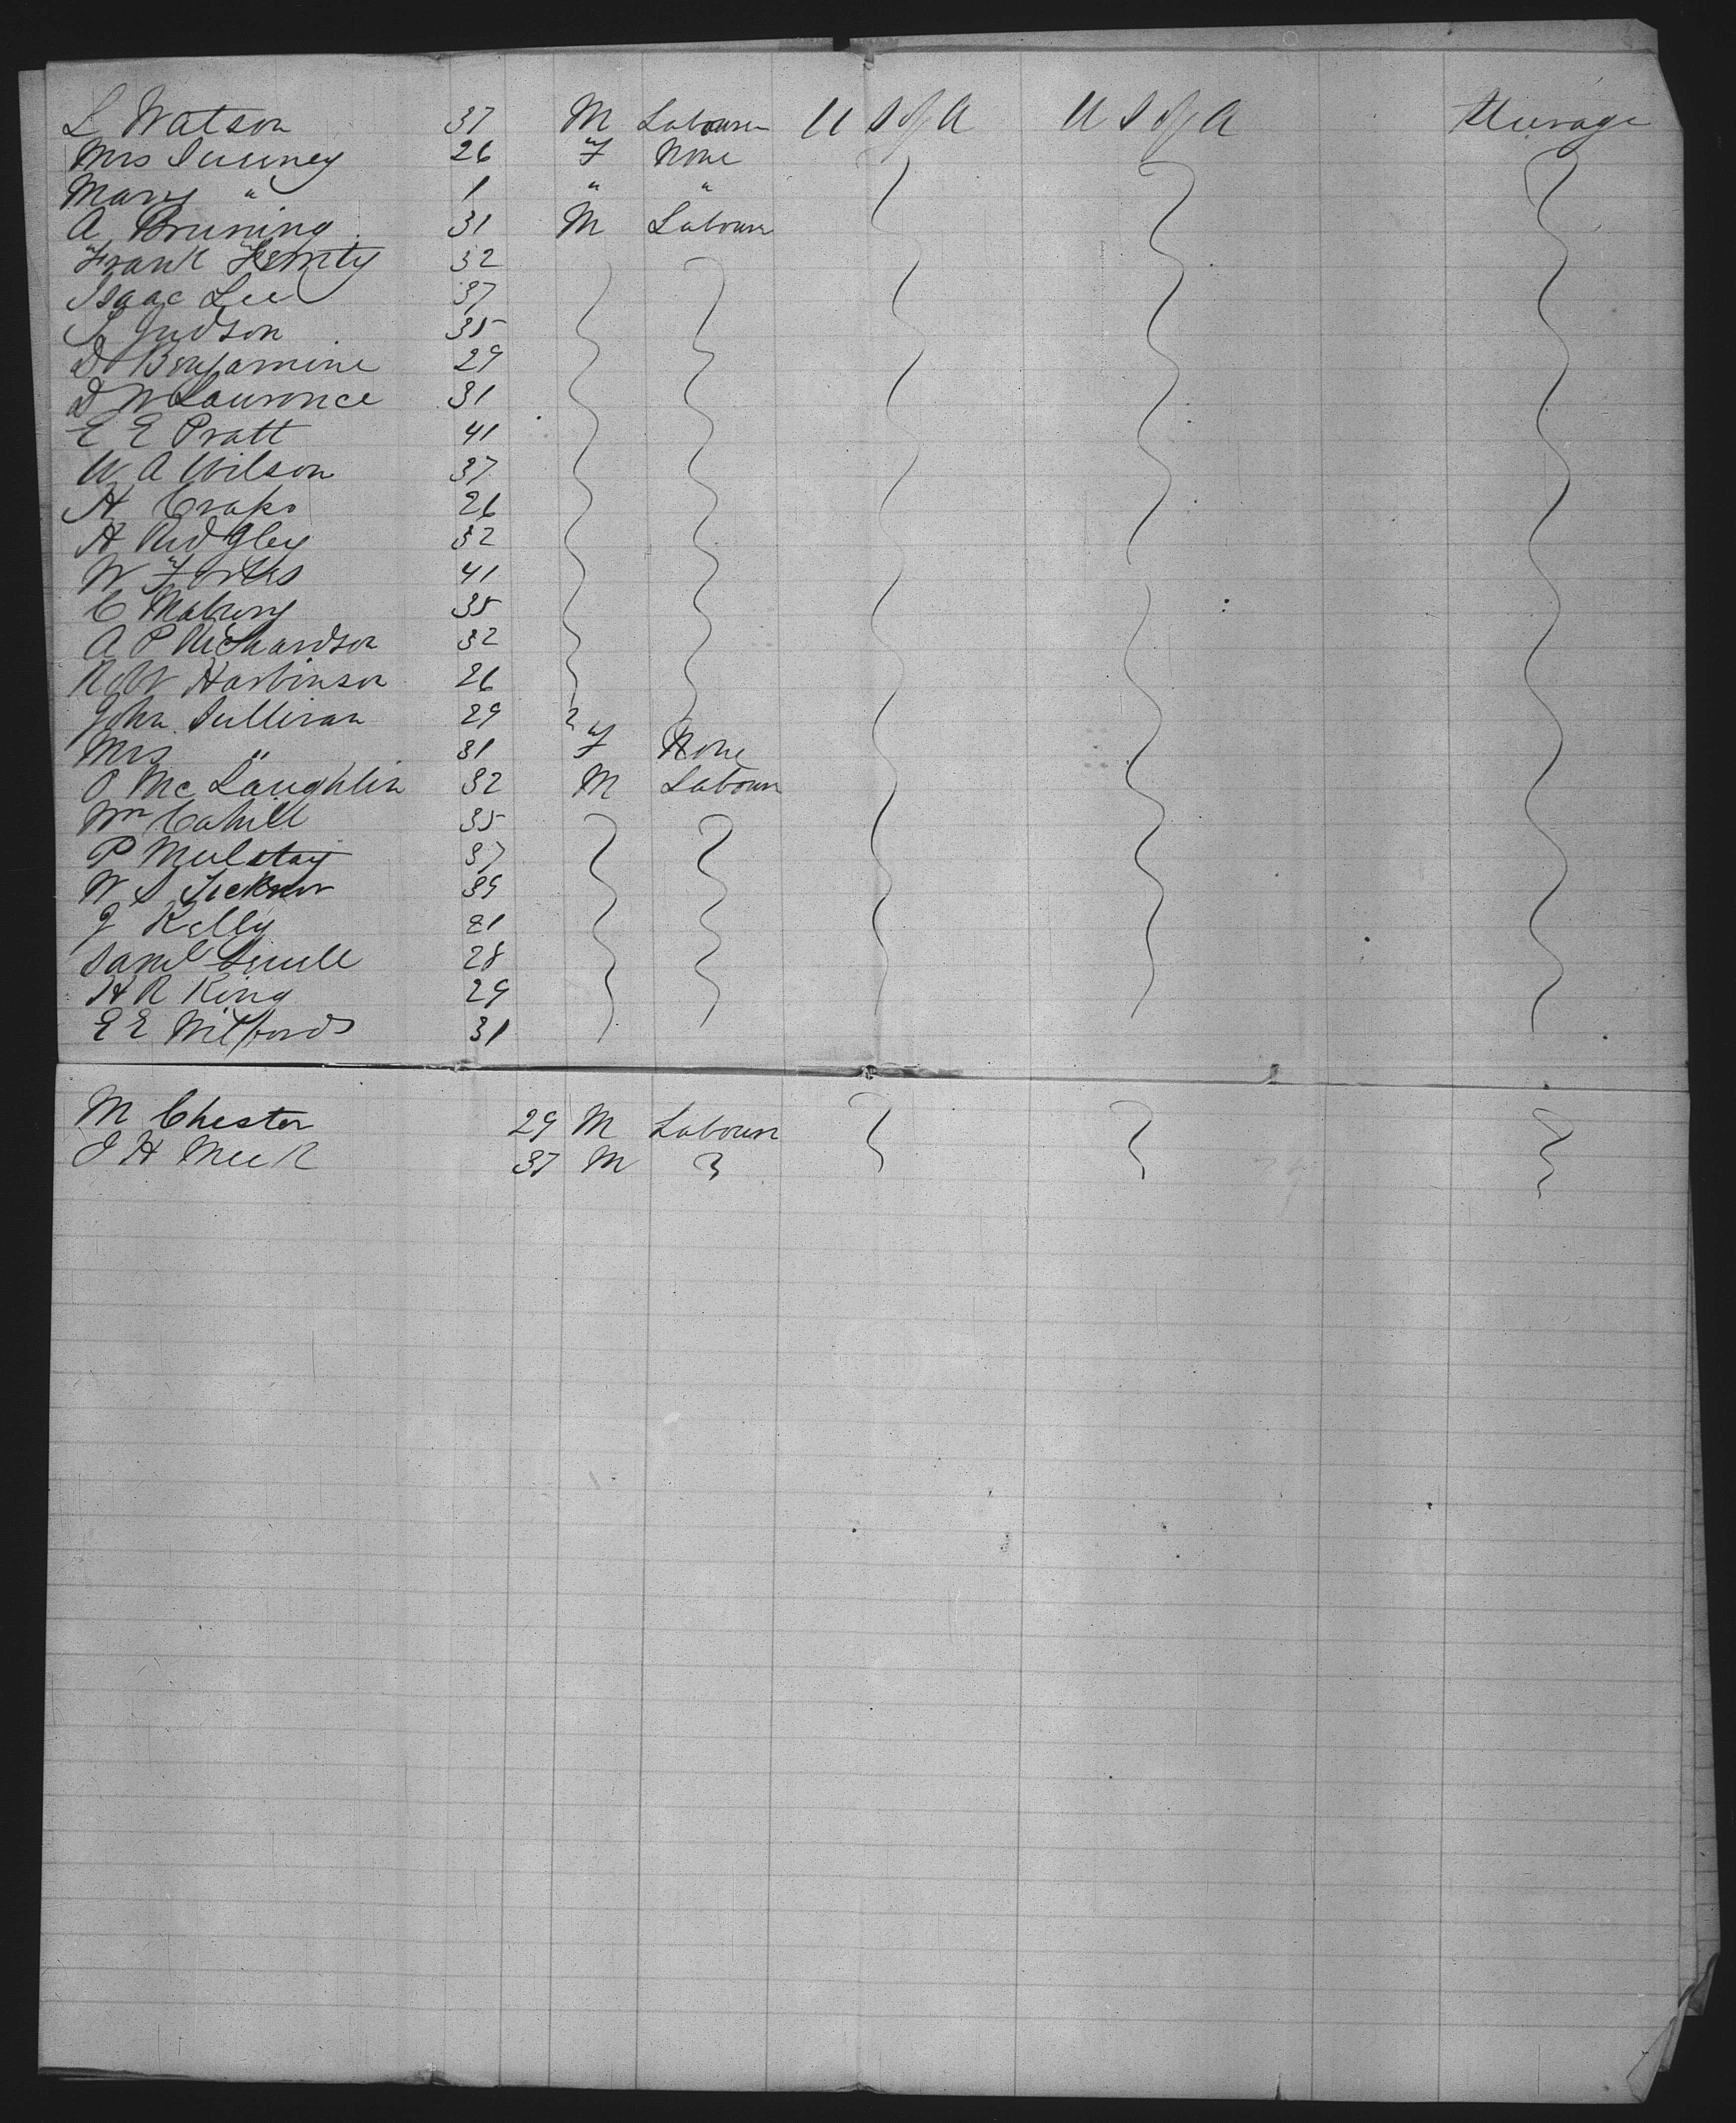 L Watson 37 M Labourer U S of A U S of A Steerage
Mrs 26 F None
Mary " 1 " "
A Bruning 31 M Labourer
Frank 32
Isaac Lee 37
S Judson 35
D Benjamine 29
D W Lawrence 31
E E Pratt 41
W A Wilson 37
H Crapo 26
A Ridgley 32
W 41
C Mabury 35
A P Richardson 32
Robt Harbinson 26
John Sullivan 29
Mrs " 31 F None
P McLaughlin 32 M Labourer
Wm Cahill 35
P 37
W S Ticknor 39
J Kelly 21
Saml 28
H R King 29
E E Wilford 31
M Chester 29 M Labourer
J H Meek 37 M